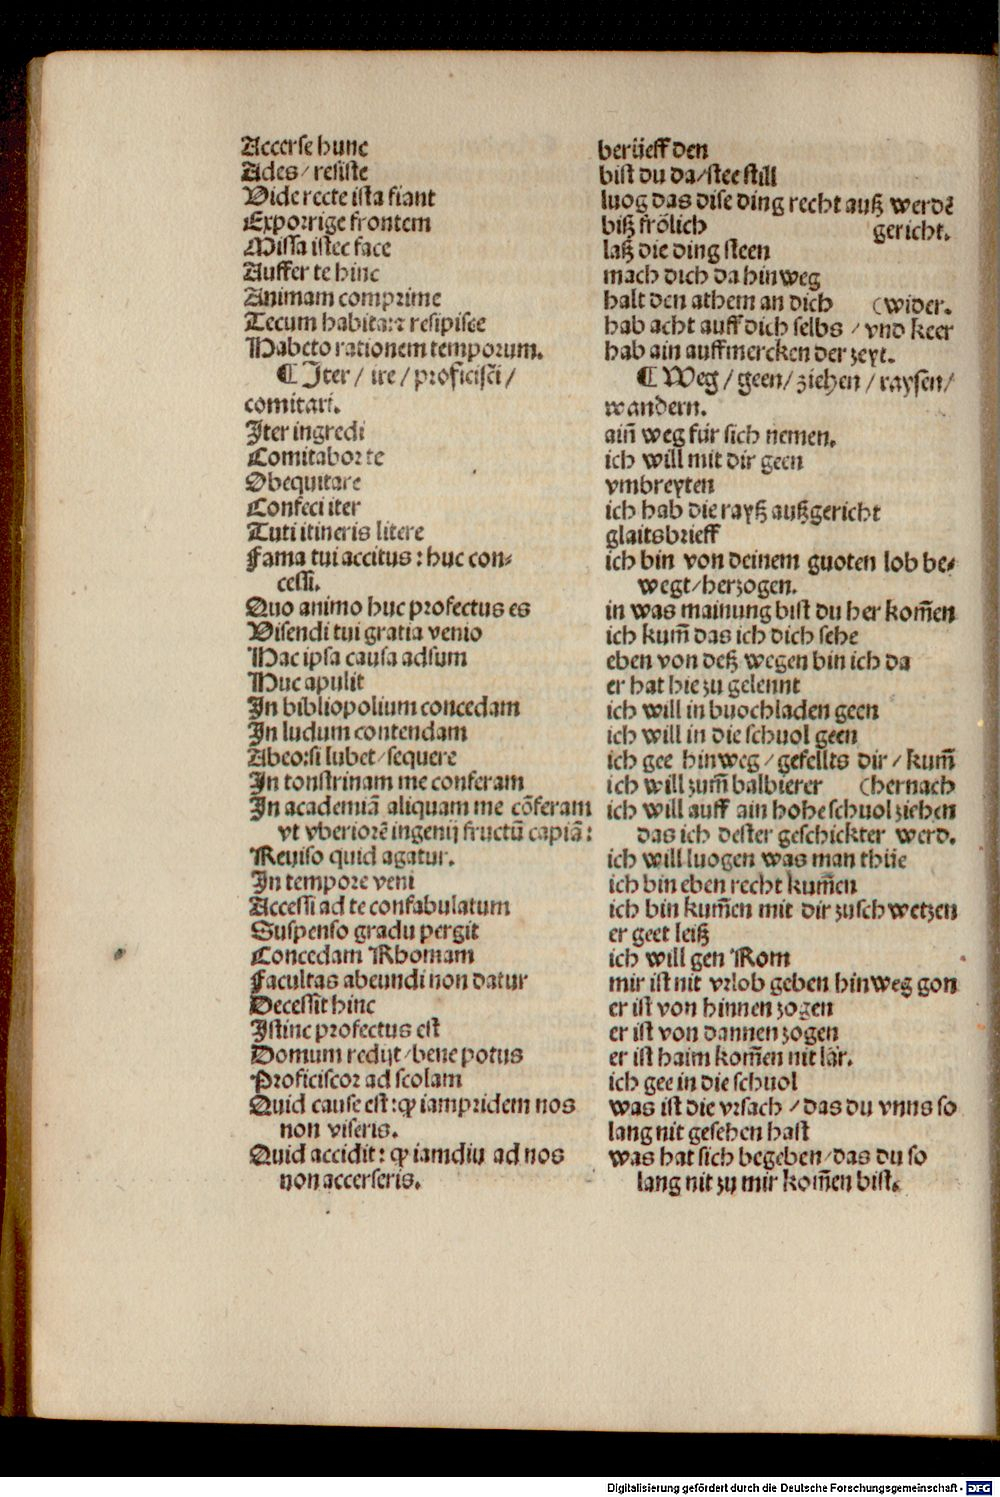 Accerse hunc
Ades / resiste
Vide recte ista fiant
Exporrige frontem
Missa istec face
Auffer te hinc
Animam comprime
Tecum habita: ⁊ resipisce
Habeto rationem temporum.
¶ Iter / ire / proficisci /
comitari.
Iter ingredi
Comitabor te
Obequitare
Confeci iter
Tuti itineris litere
Fama tui accitus : huc con⸗
cessi.
Quo animo huc profectus es
Visendi tui gratia venio
Hac ipsa causa adsum
Huc apulit
In bibliopolium concedam
In ludum contendam
Abeo: si lubet / sequere
In tonstrinam me conferam
In academiā aliquam me cōferam
vt vberiorē ingenij fructū capiā:
Reuiso quid agatur.
In tempore veni
Accessi ad te confabulatum
Suspenso gradu pergit
Concedam Rhomam
Facultas abeundi non datur
Decessit hinc
Istinc profectus est
Domum redijt / bene potus
Proficiscor ad scolam
Quid cause est : ꝙ iampridem nos
non viseris.
Quid accidit : ꝙ iamdiu ad nos
non accerseris.
berüeff den
bist du da / stee still
luog das dise ding recht auß werdē
biß frölich gericht.
laß die ding steen
mach dich da hinweg
halt den athem an dich (wider.
hab acht auff dich selbs / vnd keer
hab ain auffmercken der zeyt.
¶ Weg / geen / ziehen / raysen /
wandern.
ain̄ weg für sich nemen.
ich will mit dir geen
vmbreyten
ich hab die rayß außgericht
glaitsbrieff
ich bin von deinem guoten lob be⸗
wegt / herzogen.
in was mainung bist du her kom̄en
ich kum̄ das ich dich sehe
eben von deß wegen bin ich da
er hat hie zu gelennt
ich will in buochladen geen
ich will in die schuol geen
ich gee hinweg / gefellts dir / kum̄
ich will zum̄ balbierer (hernach
ich will auff ain hohe schuol ziehen
das ich dester geschickter werd.
ich will luogen was man thüe
ich bin eben recht kum̄en
ich bin kum̄en mit dir zuschwetzen
er geet leiß
ich will gen Rom
mir ist nit vrlob geben hinweg gon
er ist von hinnen zogen
er ist von dannen zogen
er ist haim kom̄en nit lär.
ich gee in die schuol
was ist die vrsach / das du vnns so
lang nit gesehen hast
was hat sich begeben / das du so
lang nit zu mir kom̄en bist.
Digitalisierung gefördert durch die Deutsche Forschungsgemeinschaft - DFG